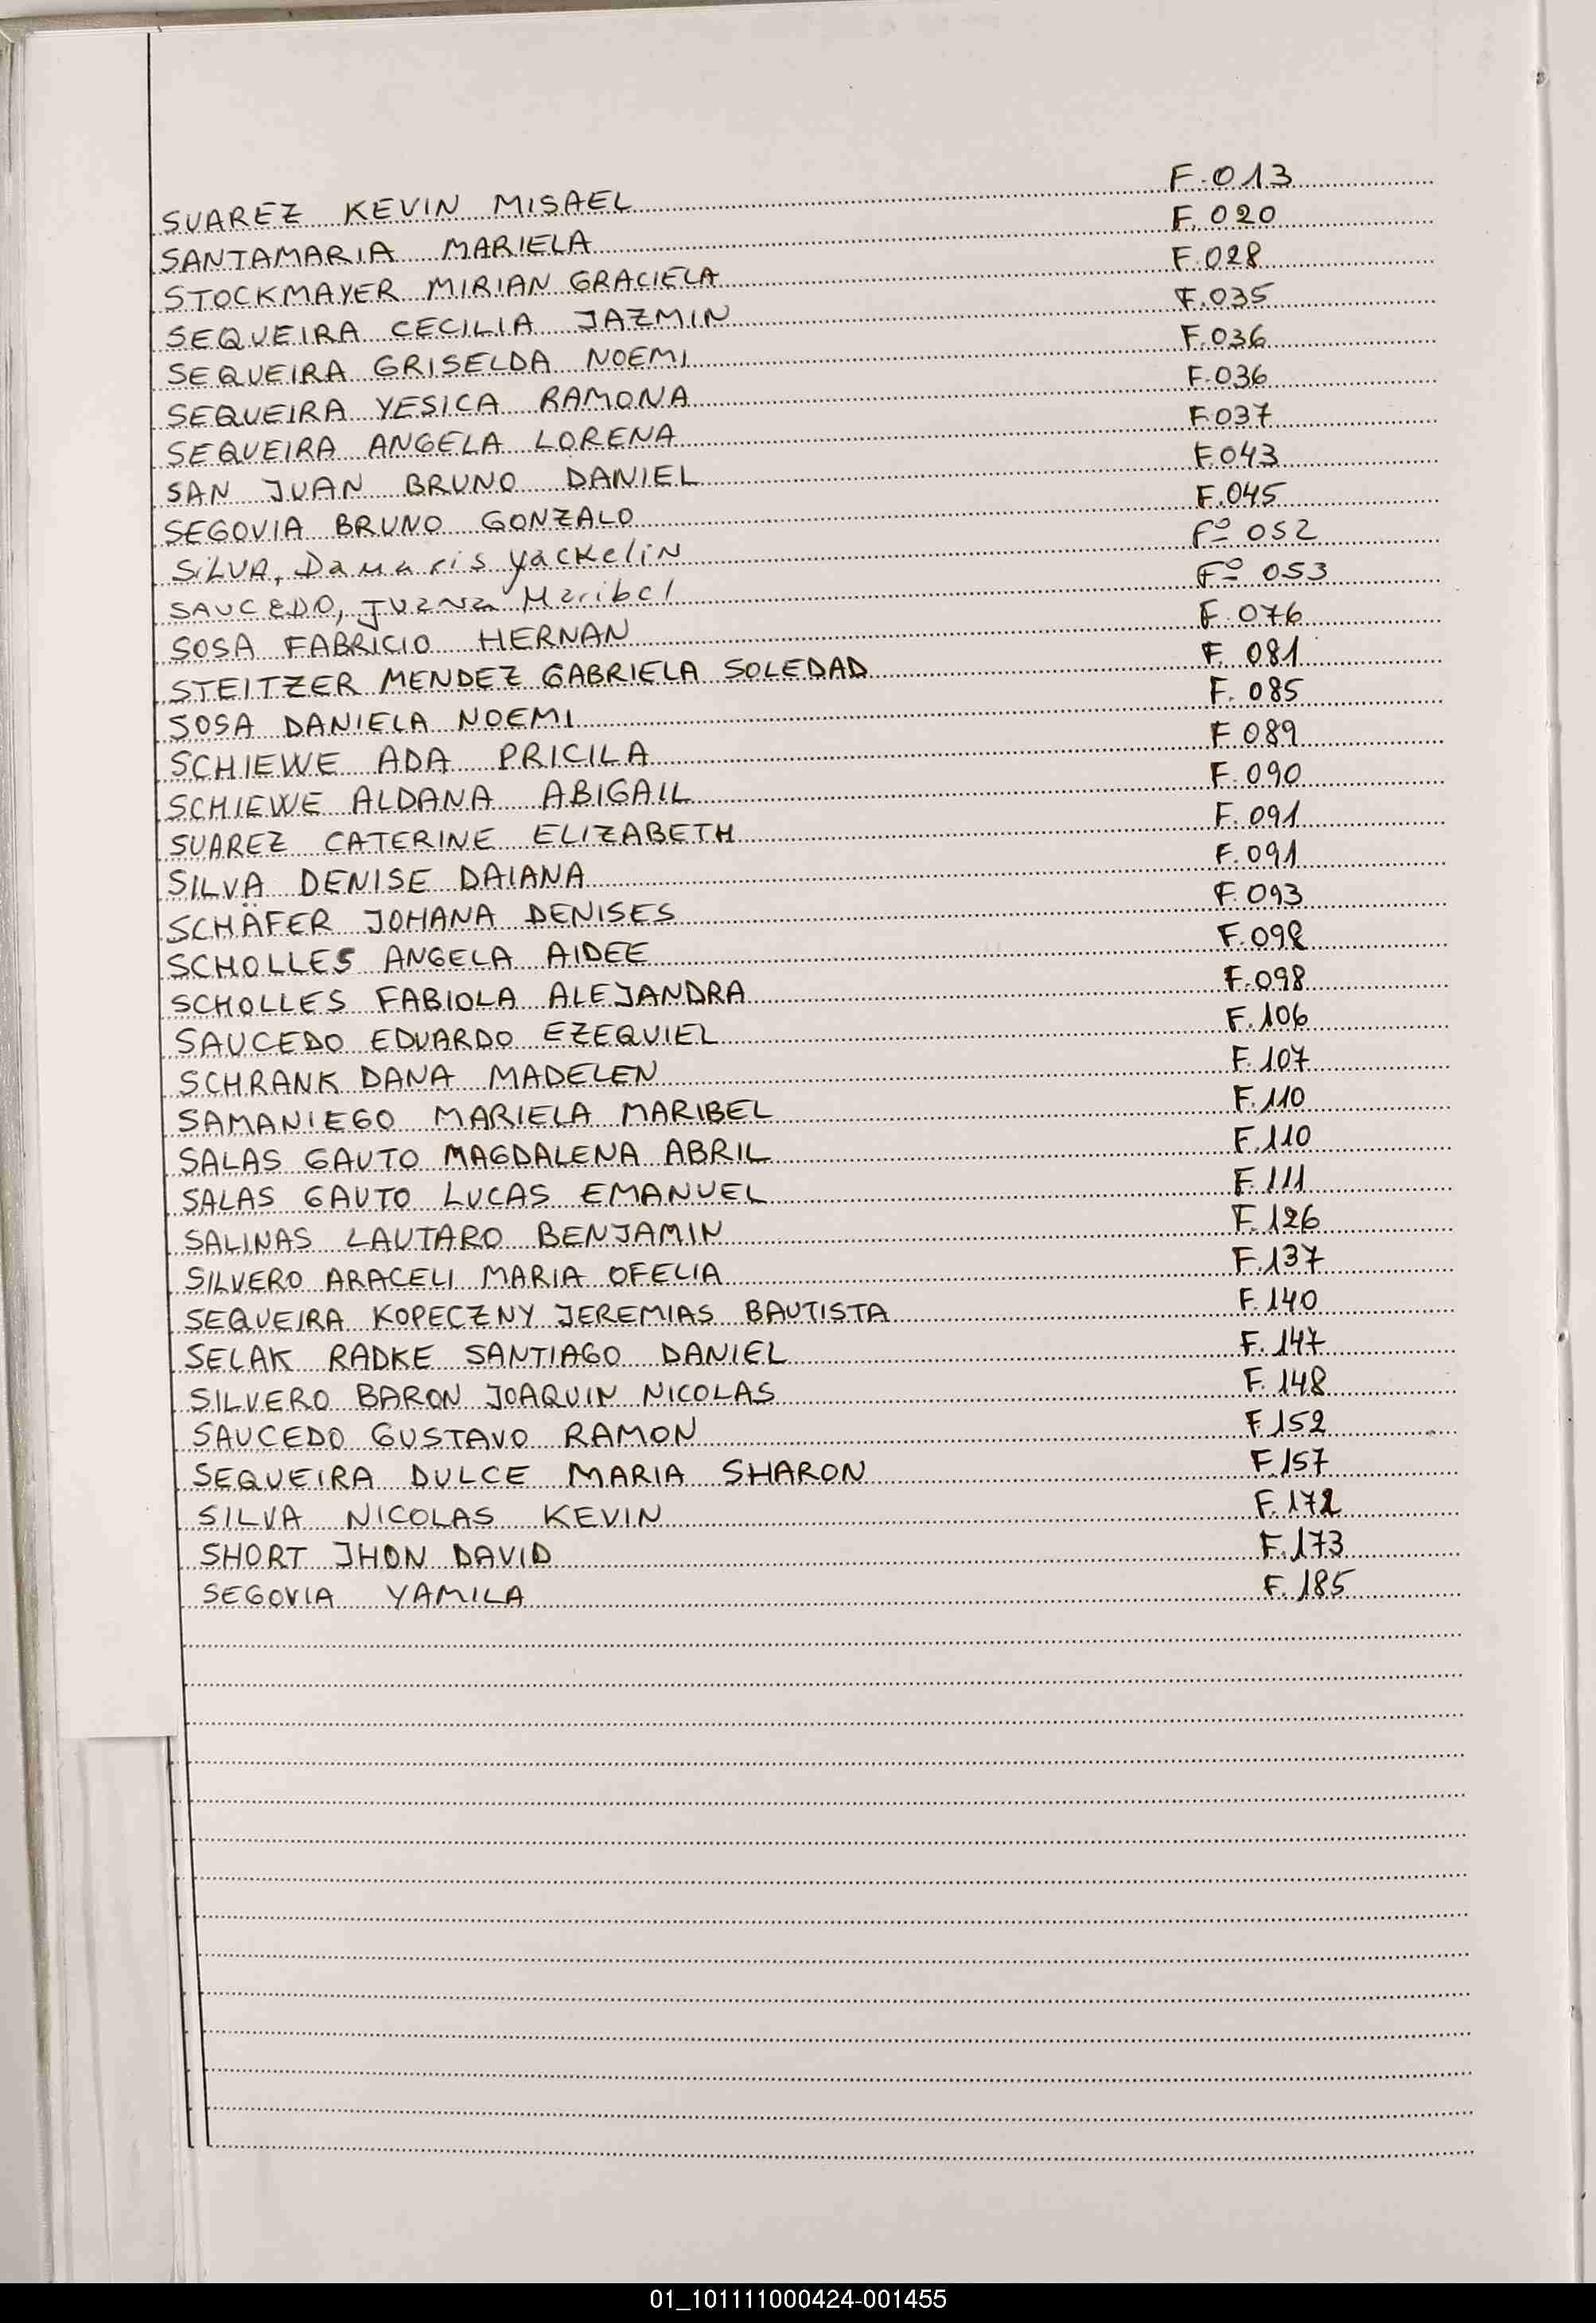 SUAREZ KEVIN MISAEL F.013
SANTAMARIA MARIELA F.020
STOCKMAYER MIRIAN GRACIELA F.028
SEQUEIRA CECILIA JAZMIN F.035
SEQUEIRA GRISELDA NOEMI F.036
SEQUEIRA YESICA RAMONA F.036
SEQUEIRA ANGELA LORENA F.037
SAN JUAN BRUNO DANIEL F.043
SEGOVIA BRUNO GONZALO F.045
SILVA, Damaris Yackelin Fº 052
SAUCEDO, Juana Maribel Fº 053
SOSA FABRICIO HERNAN F.076
STEITZER MENDEZ GABRIELA SOLEDAD F. 081
SOSA DANIELA NOEMI F. 085
SCHIEWE ADA PRICILA F 089
SCHIEWE ALDANA ABIGAIL F.090
SUAREZ CATERINE ELIZABETH F. 091
SILVA DENISE DAIANA F.091
SCHÄFER JOHANA DENISES F.093
SCHOLLES ANGELA AIDEE F.098
SCHOLLES FABIOLA ALEJANDRA F.098
SAUCEDO EDUARDO EZEQUIEL F.106
SCHRANK DANA MADELEN F.107
SAMANIEGO MARIELA MARIBEL F.110
SALAS GAUTO MAGDALENA ABRIL F.110
SALAS GAUTO LUCAS EMANUEL F.111
SALINAS LAUTARO BENJAMIN F.126
SILVERO ARACELI MARIA OFELIA F.137
SEQUEIRA KOPECZNY JEREMIAS BAUTISTA F.140
SELAK RADKE SANTIAGO DANIEL F.147
SILVERO BARON JOAQUIN NICOLAS F.148
SAUCEDO GUSTAVO RAMON F.152
SEQUEIRA DULCE MARIA SHARON F.157
SILVA NICOLAS KEVIN F.172
SHORT JHON DAVID F.173
SEGOVIA YAMILA F.185
01_101111000424-001455